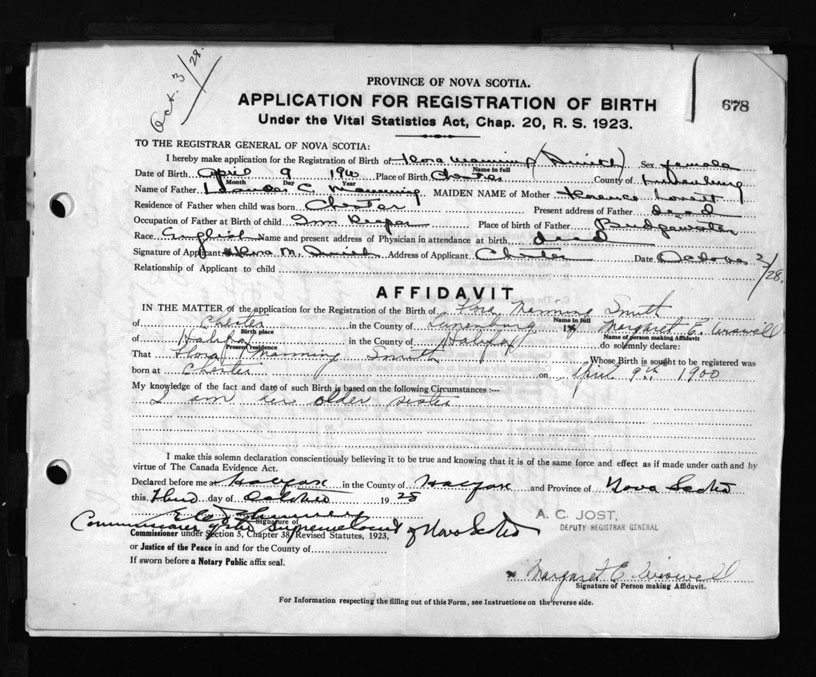 Oct. 3/28.
PROVINCE OF NOVA SCOTIA.
APPLICATION FOR REGISTRATION OF BIRTH
678
Under the Vital Statistics Act, Chap. 20, R. S. 1923.
TO THE REGISTRAR GENERAL OF NOVA SCOTIA:
I hereby make application for the Registration of Birth of Flora Manning (Smith) Sex female
Name in full
Date of Birth April 9 1900 Place of Birth Chester County of Lunenburg
Month Day Year
Name of Father C Manning MAIDEN NAME of Mother Lovett
Residence of Father when child was born Chester Present address of Father dead
Occupation of Father at Birth of child Inn Keeper Place of birth of Father Bridgewater
Race English Name and present address of Physician in attendance at birth dead
Signature of Applicant Flora M. Smith Address of Applicant Chester Date October 2/28.
Relationship of Applicant to child
AFFIDAVIT
IN THE MATTER of the application for the Registration of the Birth of Flora Manning Smith
Name in full
of Chester in the County of Lunenburg I, Margaret E.
Birth place Name of person making Affidavit
of Halifax in the County of Halifax do solemnly declare:
Present residence
That Flora Manning Smith Whose Birth is sought to be registered was
born at Chester on April 9th 1900
My knowledge of the fact and date of such Birth is based on the following Circumstances :—
I am her older sister
I make this solemn declaration conscientiously believing it to be true and knowing that it is of the same force and effect as if made under oath and by
virtue of The Canada Evidence Act.
Declared before me at Halifax in the County of Halifax and Province of Nova Scotia
this Third day of October 1928
A. C. JOST,
DEPUTY REGISTRAR GENERAL
Signature of
Commissioner of the Supreme Court of Nova Scotia
Commissioner under Section 5, Chapter 38, Revised Statutes, 1923,
or Justice of the Peace in and for the County of
If sworn before a Notary Public affix seal.
x Margaret E.
Signature of Person making Affidavit.
For Information respecting the filling out of this Form, see Instructions on the reverse side.